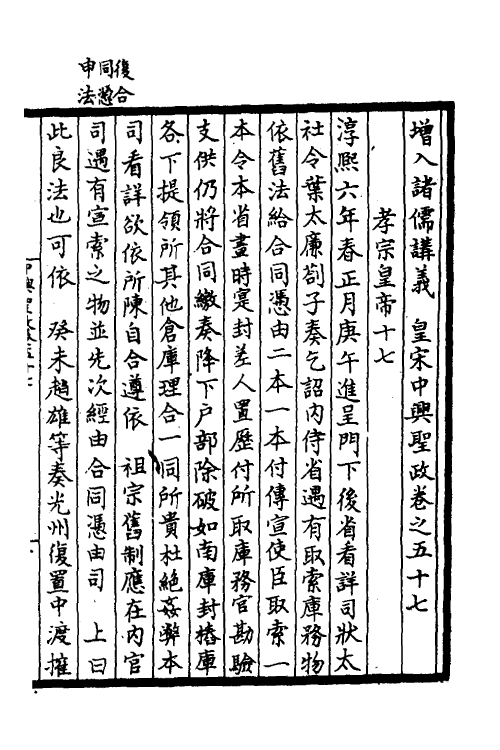 增入諸儒講義　皇宋中興聖政卷之五十七
孝宗皇帝十七
淳熙六年春正月庚午進呈門下後省看詳司狀太
社令葉太廉劄子奏乞詔内侍省遇有取索庫務物
依舊法給合同憑由二本一本付傳宣使臣取索一
本令本省畫時寔封差人置歷付所取庫務官勘驗
支供仍將合同繳奏降下户部除破如南庫封樁庫
各下提領所其他倉庫理合一同所貴杜絶姦弊本
司看詳欲依所陳自合遵依　祖宗舊制應在内官
司遇有宣索之物並先次經由合同憑由司　上曰
此良法也可依　癸未趙雄等奏光州復置中渡搉
復合
同憑
申法